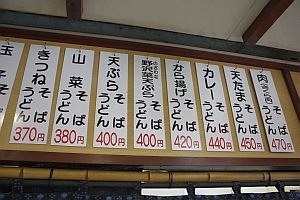 玉子そば
きつね そば うどん 370円
山菜 そば うどん 380円
天ぷら そば うどん 400円
野沢菜天ぷら そば うどん 400円
から揚げ そば うどん 420円
カレー そば うどん 440円
天たま そば うどん 450円
肉 そば うどん 470円